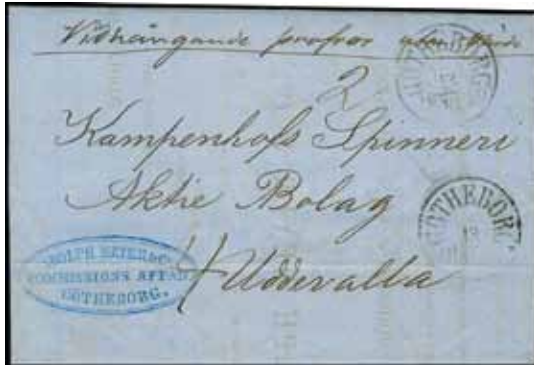 Vidhängande profvor utan värde
GÖTHEBORG
2
Kampenhofs Spinneri
Aktie Bolag
GÖTHEBORG
13
Uddevalla
ADOLPH MEYER & C.
COMMISSIONS AFFÄR
GÖTHEBORG.